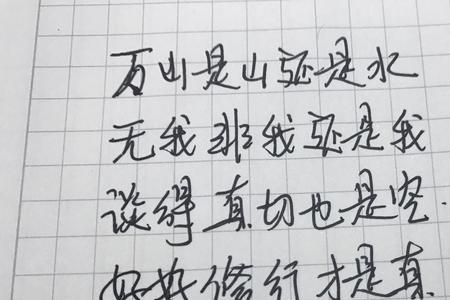 万山是山还是水
无我非我还是我
谈得真切也是空.
好好修行才是真